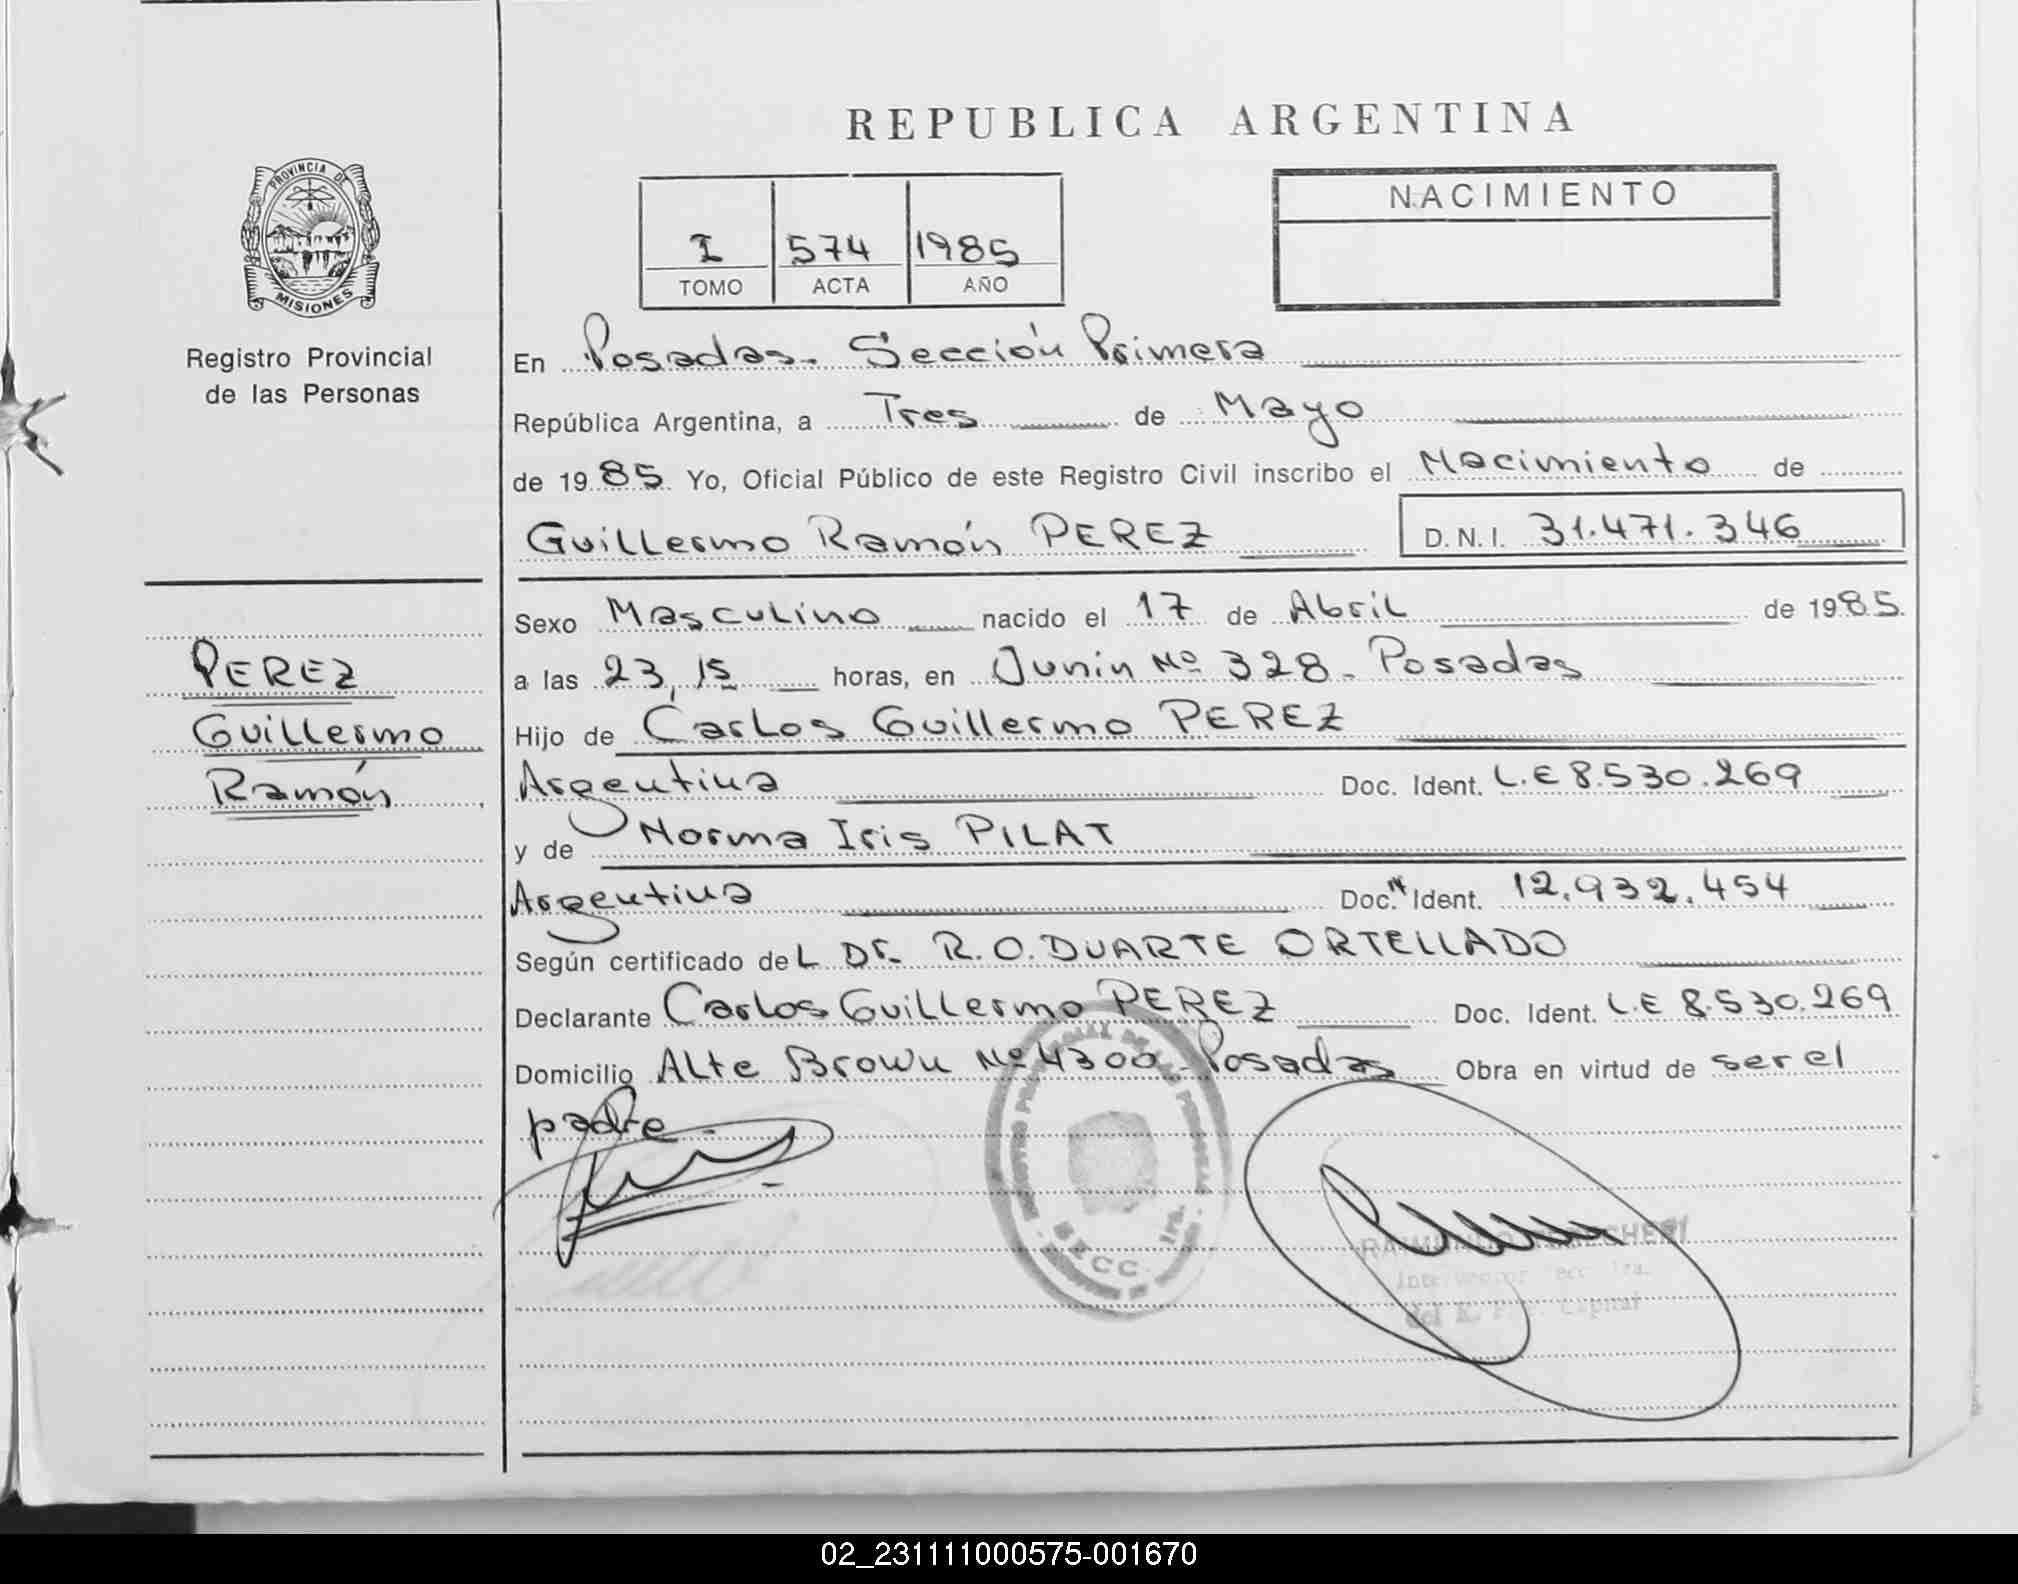 REPUBLICA ARGENTINA
PROVINCIA DE
MISIONES
Registro Provincial
de las Personas
I 574 1985
TOMO ACTA AÑO
NACIMIENTO
En Posadas. Sección Primera
República Argentina, a Tres de Mayo
de 1985 Yo, Oficial Público de este Registro Civil inscribo el Nacimiento de
Guillermo Ramón PEREZ D.N.I. 31.471.346
PEREZ
Guillermo
Ramón
Sexo Masculino nacido el 17 de Abril de 1985.
a las 23,15 horas, en Junin Nº 328. Posadas
Hijo de Carlos Guillermo PEREZ
Argentina Doc. Ident. L.E 8.530.269
y de Norma Iris PILAT
Argentina Doc. N Ident. 12.932.454
Según certificado deL Dr. R.O. DUARTE ORTELLADO
Declarante Carlos Guillermo PEREZ Doc. Ident. L.E 8.530.269
Domicilio Alte Brown Nº 4300 Posadas Obra en virtud de ser el
padre.
SECC. 1ra.
02_231111000575-001670